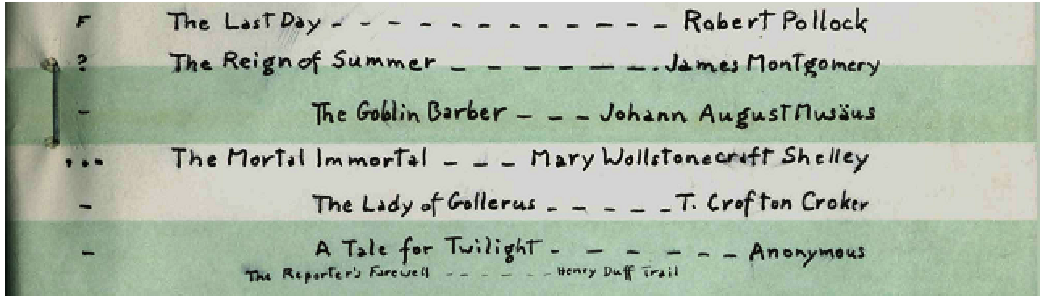 F The Last Day - - - - - - - - - - - - Robert Pollock
? The Reign of Summer - - - - - - - James Montgomery
- The Goblin Barber - - - Johann August Musäus
... The Mortal Immortal - - - Mary Wollstonecraft Shelley
- The Lady of Gollerus - - - - - T. Crofton Croker
- A Tale for Twilight - - - - - - - Anonymous
The Reporter's Farewell - - - - - - - Henry Duff Trail